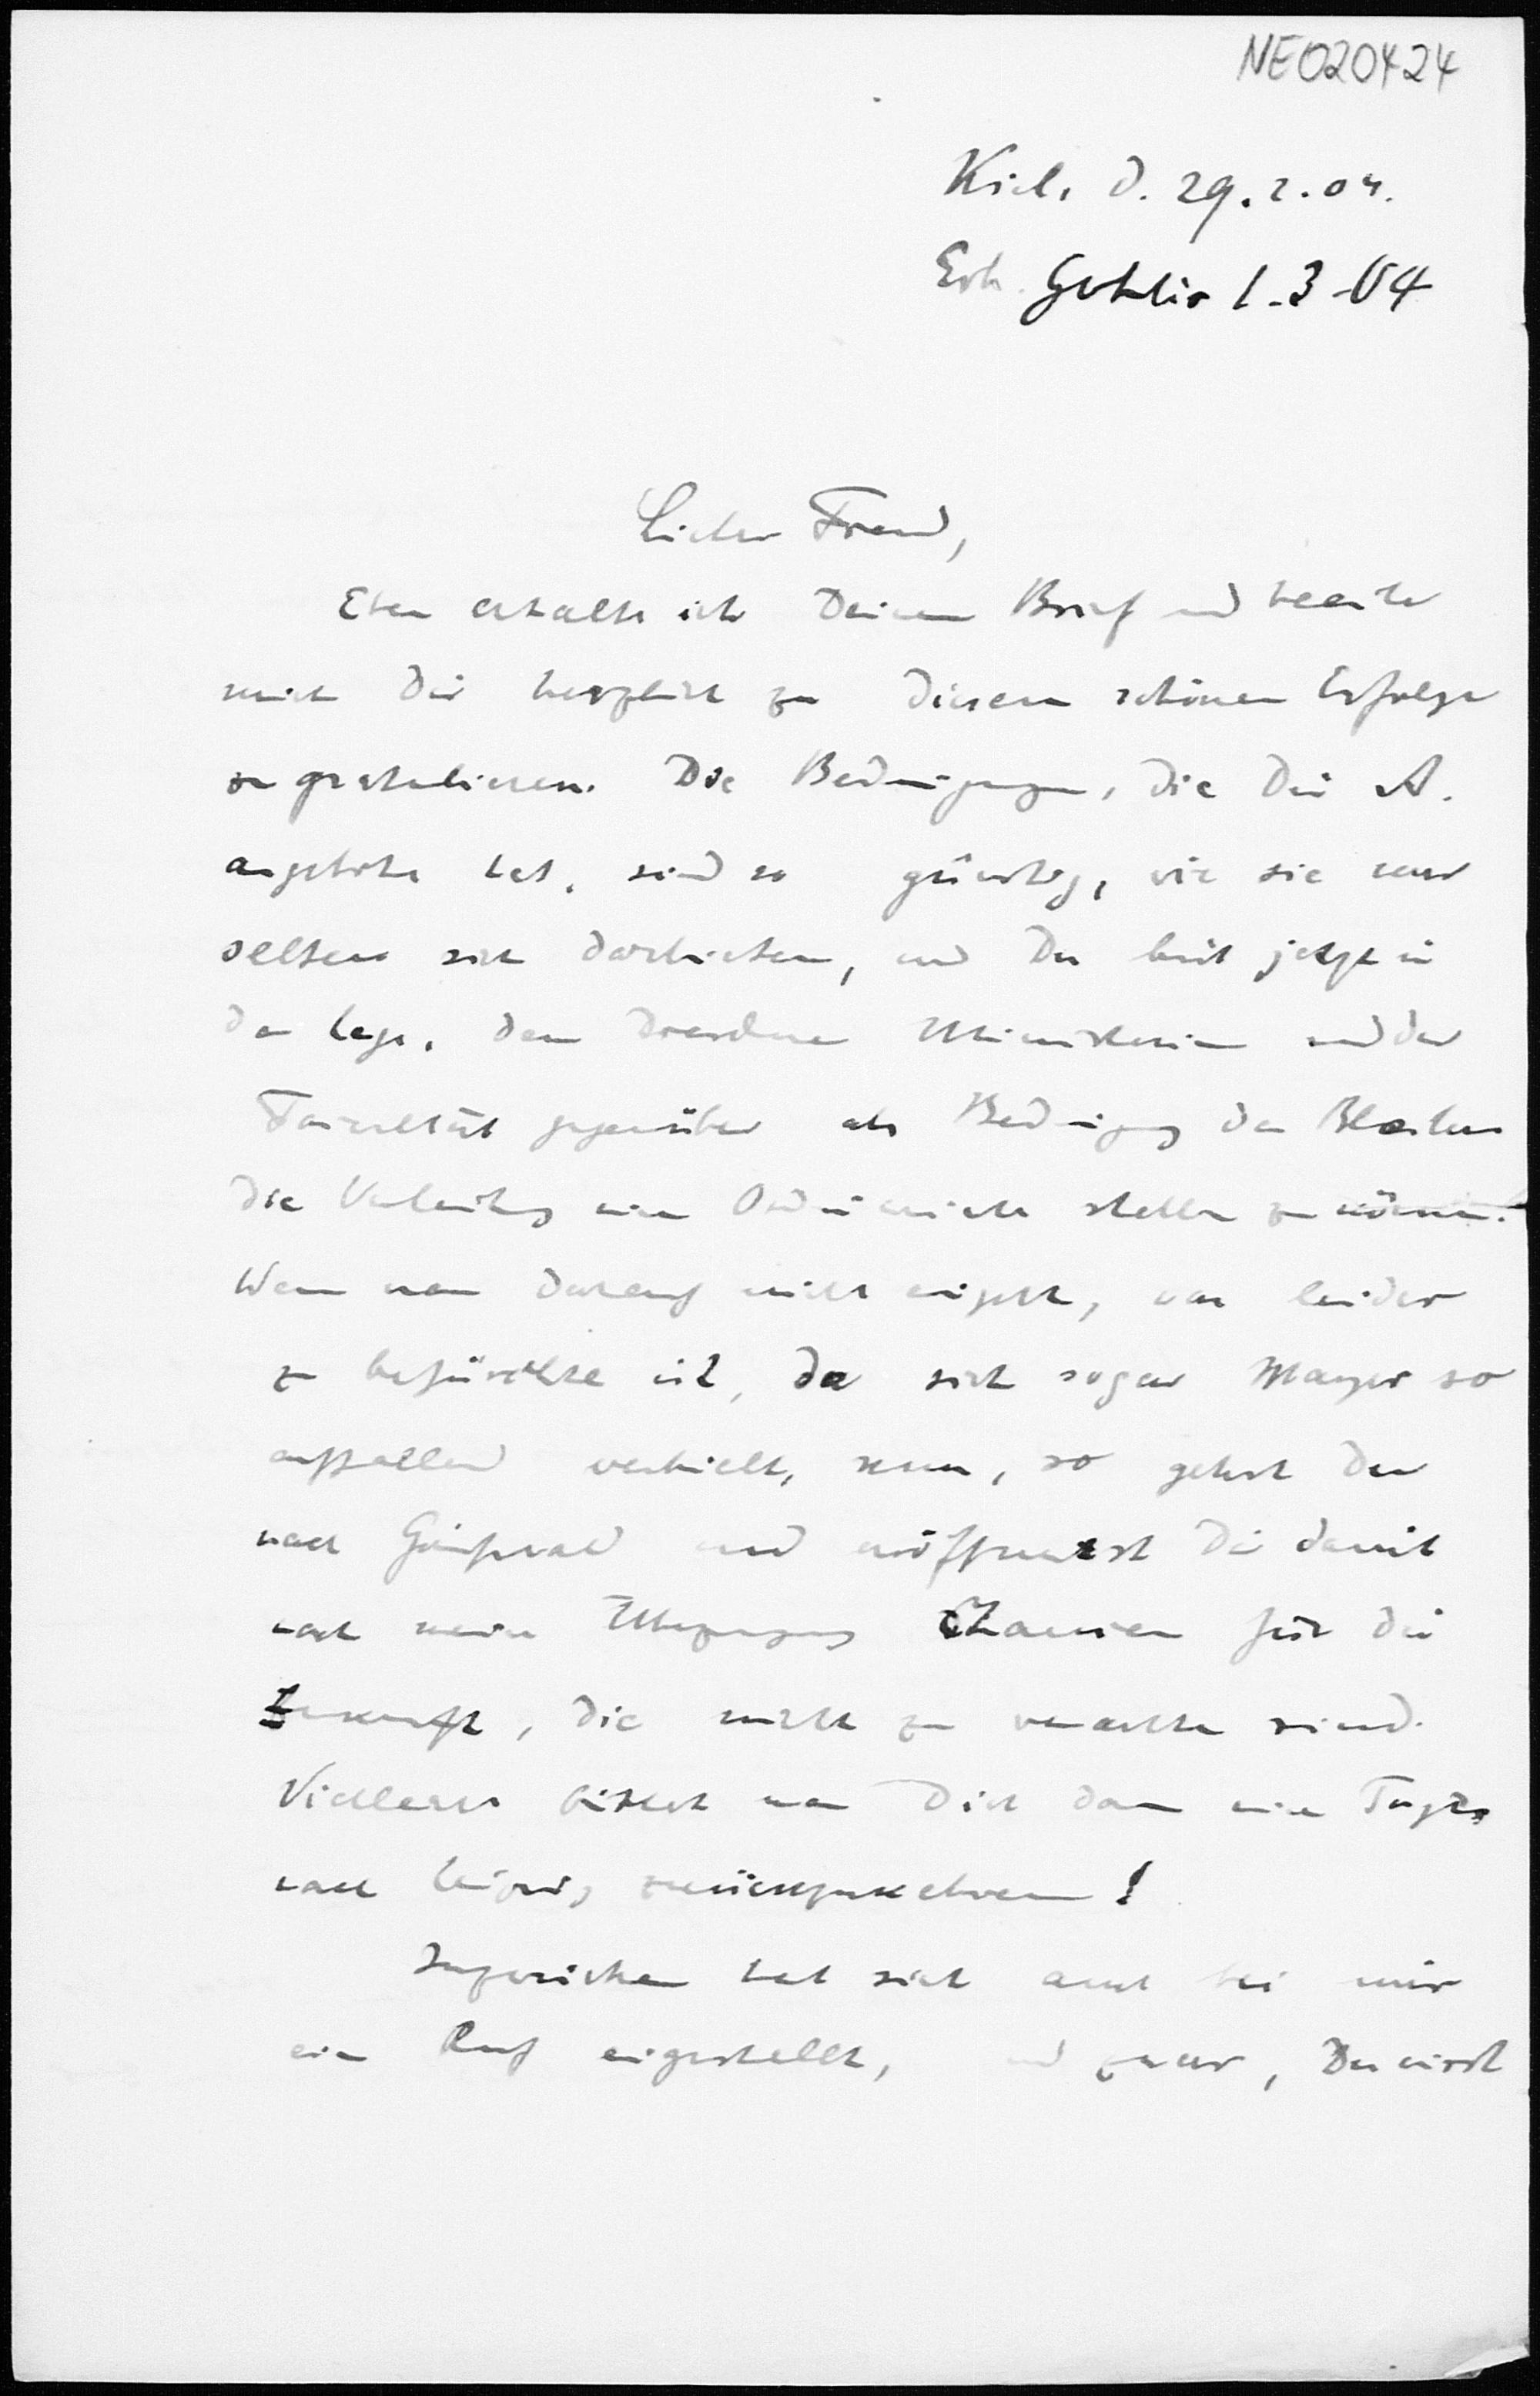 NE020424
Kiel, d. 29.2.04.
Erh. Gohlis 1-3-04
Lieber Freund,
Eben erhalte ich Deinen Brief und beeile
mich Dir herzlich zu diesem schönen Erfolge
zu gratulieren. Die Bedingungen, die Dir A.
angeboten hat, sind so günstig, wie sie nur
selten sich darbieten, und Du bist jetzt in
der Lage, dem Dresdner Ministerium und der
Facultät gegenüber als Bedingung des Bleibens
die Verleihung eines Ordinariats stellen zu können.
Wenn man darauf nicht eingeht, was leider
zu befürchten ist, da sich sogar Mayer so
auffallend verhielt, nun, so gehst Du
nach Greifswald und eröffnest Dir damit
nach meiner Überzeugung Chancen für die
Zukunft, die nicht zu verachten sind.
Vielleicht bittet man Dich dann eines Tages
nach Leipzig zurückzukehren!
Inzwischen hat sich auch bei mir
ein Ruf eingestellt, und zwar, Du wirst